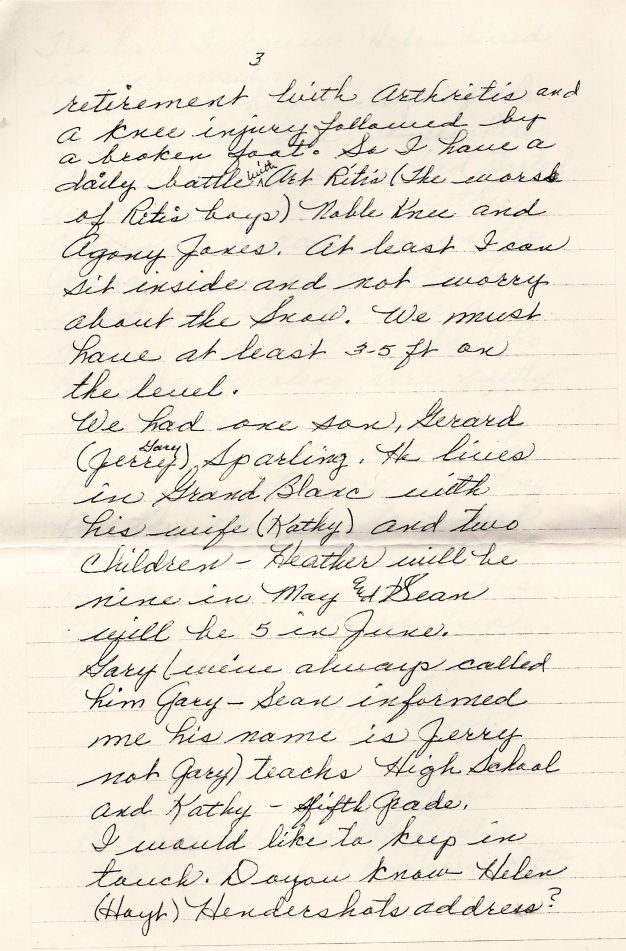 3
retirement with Arthritis and
a knee injury followed by
a broken foot. So I have a
daily battle with Art Ritis (The worse
of Ritis boys) Noble Knee and
Agony Jones. At least I can
sit inside and not worry
about the Snow. We must
have at least 3-5 ft on
the level.
We had one son, Gerard
(Jerry) Gary Sparling. He lives
in Grand Blanc with
his wife (Kathy) and two
children - Heather will be
nine in May and Sean
will be 5 in June.
Gary (we've always called
him Gary - Sean informed
me his name is Jerry
not Gary) teachs High School
and Kathy - fifth Grade.
I would like to keep in
touch. Do you know Helen
(Hoyt) Hendershots address?